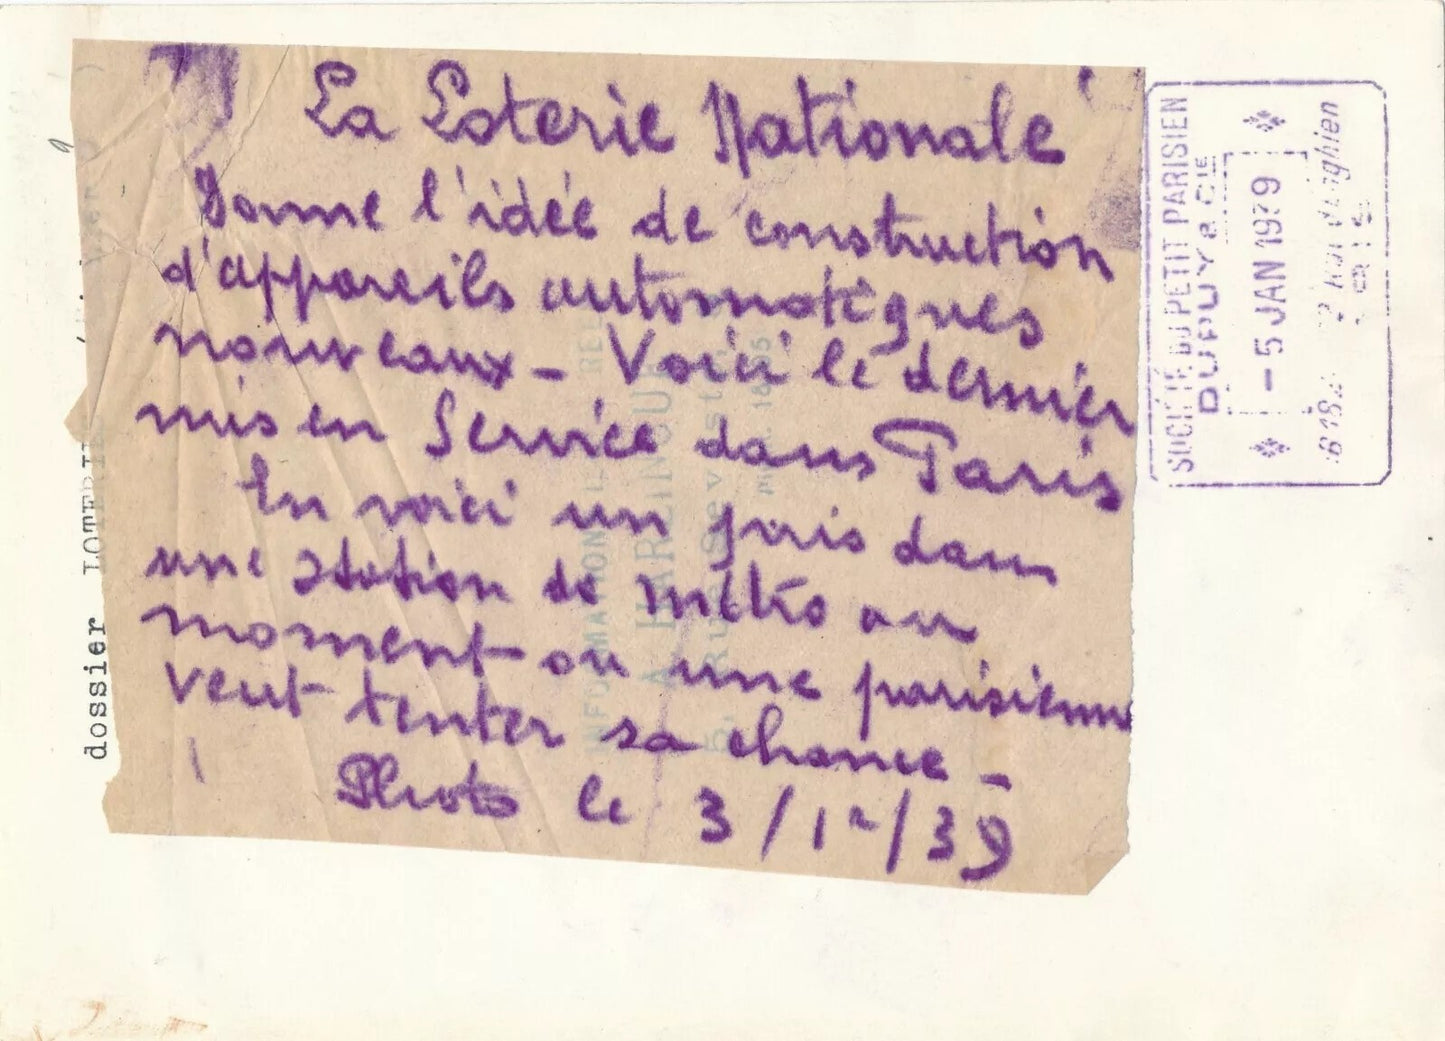 La Loterie Nationale
Donne l'idée de construction
d'appareils automatiques
nouveaux - Voici le dernier
mis en Service dans Paris
En voici un pris dans
une station de métro au
moment ou une parisienne
veut tenter sa chance -
Photo le 3/12/39
dossier LOTERIE
SOCIÉTÉ DU PETIT PARISIEN
DUPUY & CIE
- 5 JAN 1939
INFORMATIONS
A HARLINGUE
5, rue Seveste